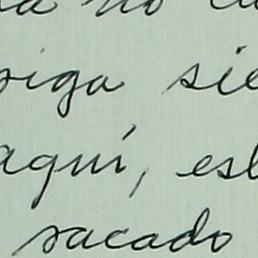 no
siga sie
aquí, est
sacado